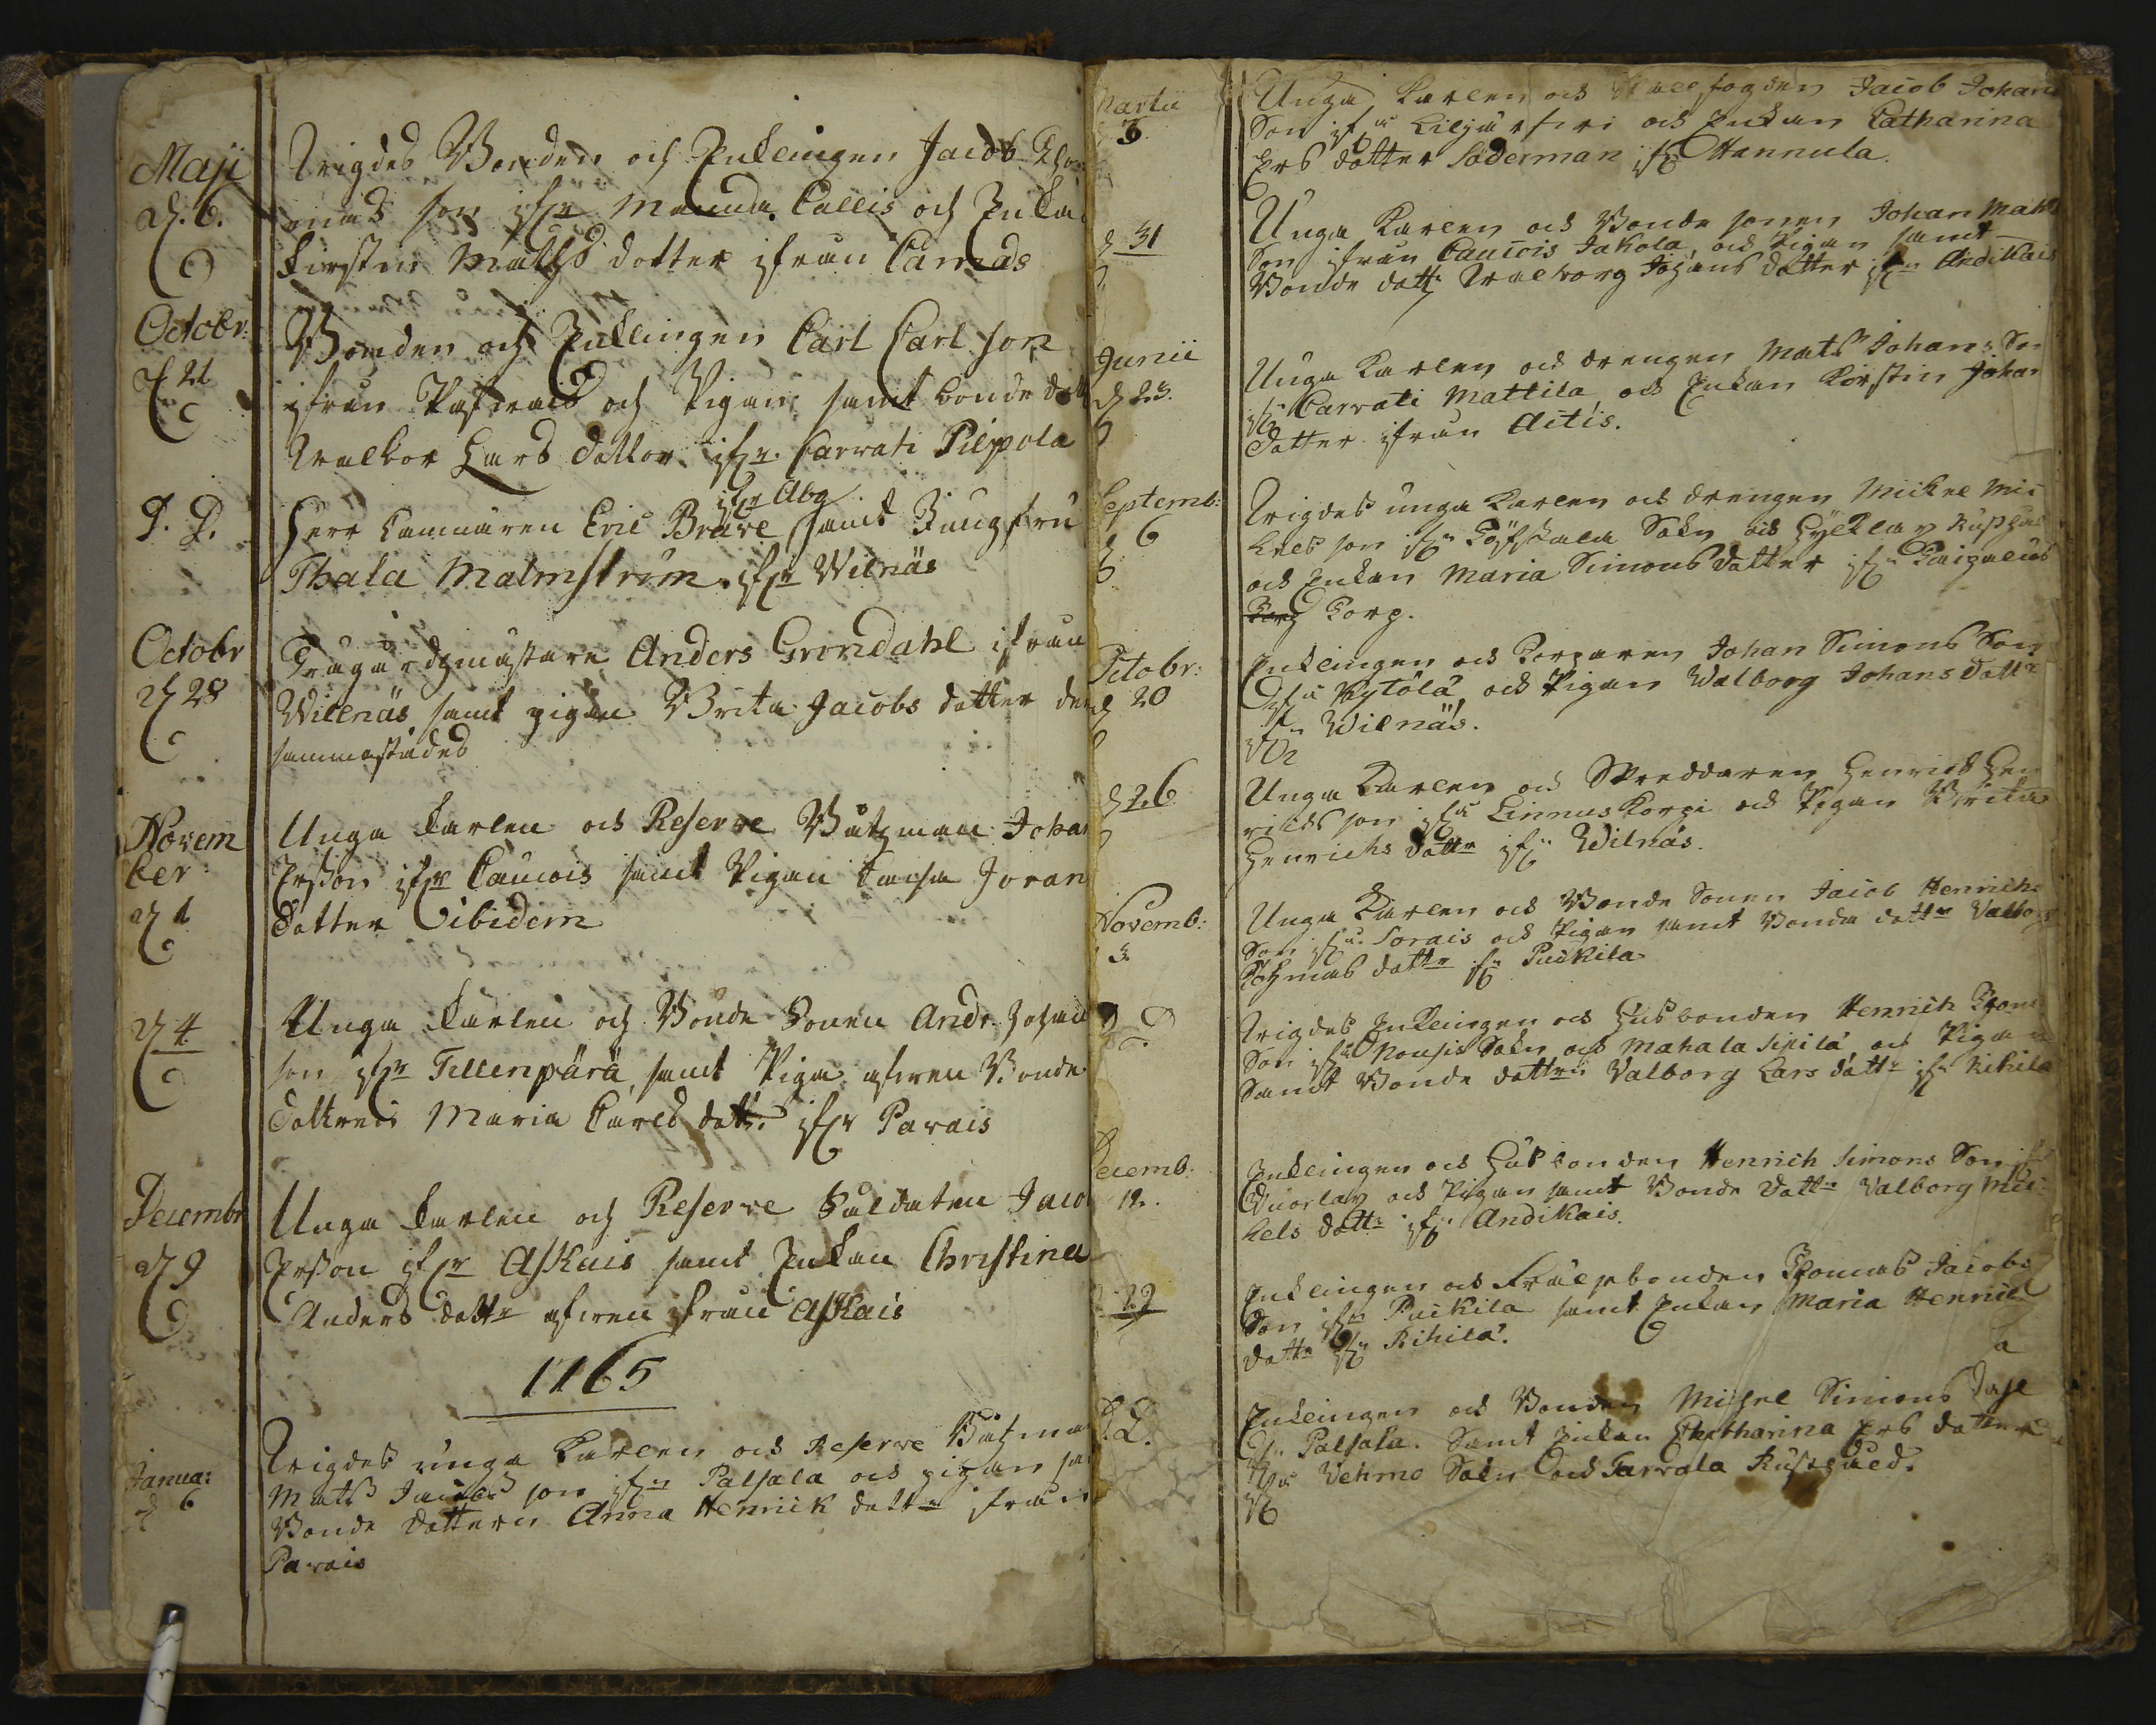 Maji
d. 6.
Wigdes Bonden och Enklingen Jacob Tho-
mas son ifrn Mauda Callis och Enka
Kirstin Matsd dotter ifrån Cames
Octobr:
d 21
Bonden och Enklingen Carl Carl son
ifrån och Pigan samt bonde dott
Walbor Lars dotter. ifrn. Carrati Pilpola
D. D.
ifrn Abg
Herr Camnären Eric Brave samt Jungfru
Malmström. ifrn Wilnäs
Octobr
d 28
Trägårdzmästare Anders Grondahl ifrån
Willnäs samt pigan Brita Jacobs dotter der
sammastädes
Novem
ber
d 1
Unga Karlen och Reserve Båtzman Joha
Ersson ifrn Caucois samt Pigan Joran
dotter ibidem
d 4
Unga Karlen och Bonde Sonen Andr. Johan
son ifrn Tellenpärä, samt Piga afwen Bonde
dottren Maria Carls dott: ifrn Parais
Decembr
d 9
Unga Karlen och Reserve Suldaten Jaco
Ersson ifrn Askais samt Enkan Christina
Anders dottr afwen ifrån Askais
1765
Janua:
d 6
Wigdes unga Karlen och Reserve Båtzma
Mats Jacobs son ifrn Palsala och pigan sa
Bonde dottern Anna Henrick dottr ifrån
Parais
Martii
3.
Unga Karlen och fogden Jacob Johans
Son ifrn och Enkan Catharina
Ers dotter Söderman ifrn Hannula.
d 31
Unga Karlen och Bonde sonen Johan Mats
Son ifrån Caucois Jakola, och Pigan samt
Bonde dott: Walborg Johans dotter ifrn Andikais
Junii
d 23.
Unga Karlen och drengen Mats Johans Son
ifrn Carrati Mattila, och Enkan Kirstin Johan
dotter ifrån Aitis.
Septemb:
6
Wigdes unga Karlen och drengen Mickel Mic
kels son ifrn Sokn och
och Enkan Maria Simons dotter ifrn
Torp.
Octobr:
d 20
Enklingen och Torparen Johan Simons Son
ifrn Kytölä och Pigan Walborg Johans dottr
ifrn Wilnäs.
d 26
Unga Karlen och Skreddaren Henrick Hen
ricks son ifrn Linnus Korpi och Pigan Brita
Henrichs dottr ifrn Wilnäs.
Novemb:
3
Unga Karlen och Bonde Sonen Jacob Henrichs
Son ifrn. Sorais och Pigan samt Bonde dottr Valborg
Thomas dottr ifrn Puckila
D D
Wigdes Enklingen och Husbonden Henrich Thom
Son ifrn Nousis Sokn och Mahala Sipilä och Pigan
samt Bonde dottren Valborg Lars dottr ifrn Rihila
Decemb:
12.
Enklingen och Husbonden Henrich Simons Son ifr
och Pigan samt Bonde dottr Valborg Mic
kels dottr ifrn Andikais.
d. 29
Enklingen och Frälsebonden Thomas Jacobs
Son ifrn Puckila samt Enkan Maria Henric
dottr ifrn Rihila.
D. D.
Enklingen och Bonden Michel Simons
ifrn Palsala. Samt Enkan Chatharina Ers dotter
ifrn Vehmo Sokn och Tarvola Rusthåld.